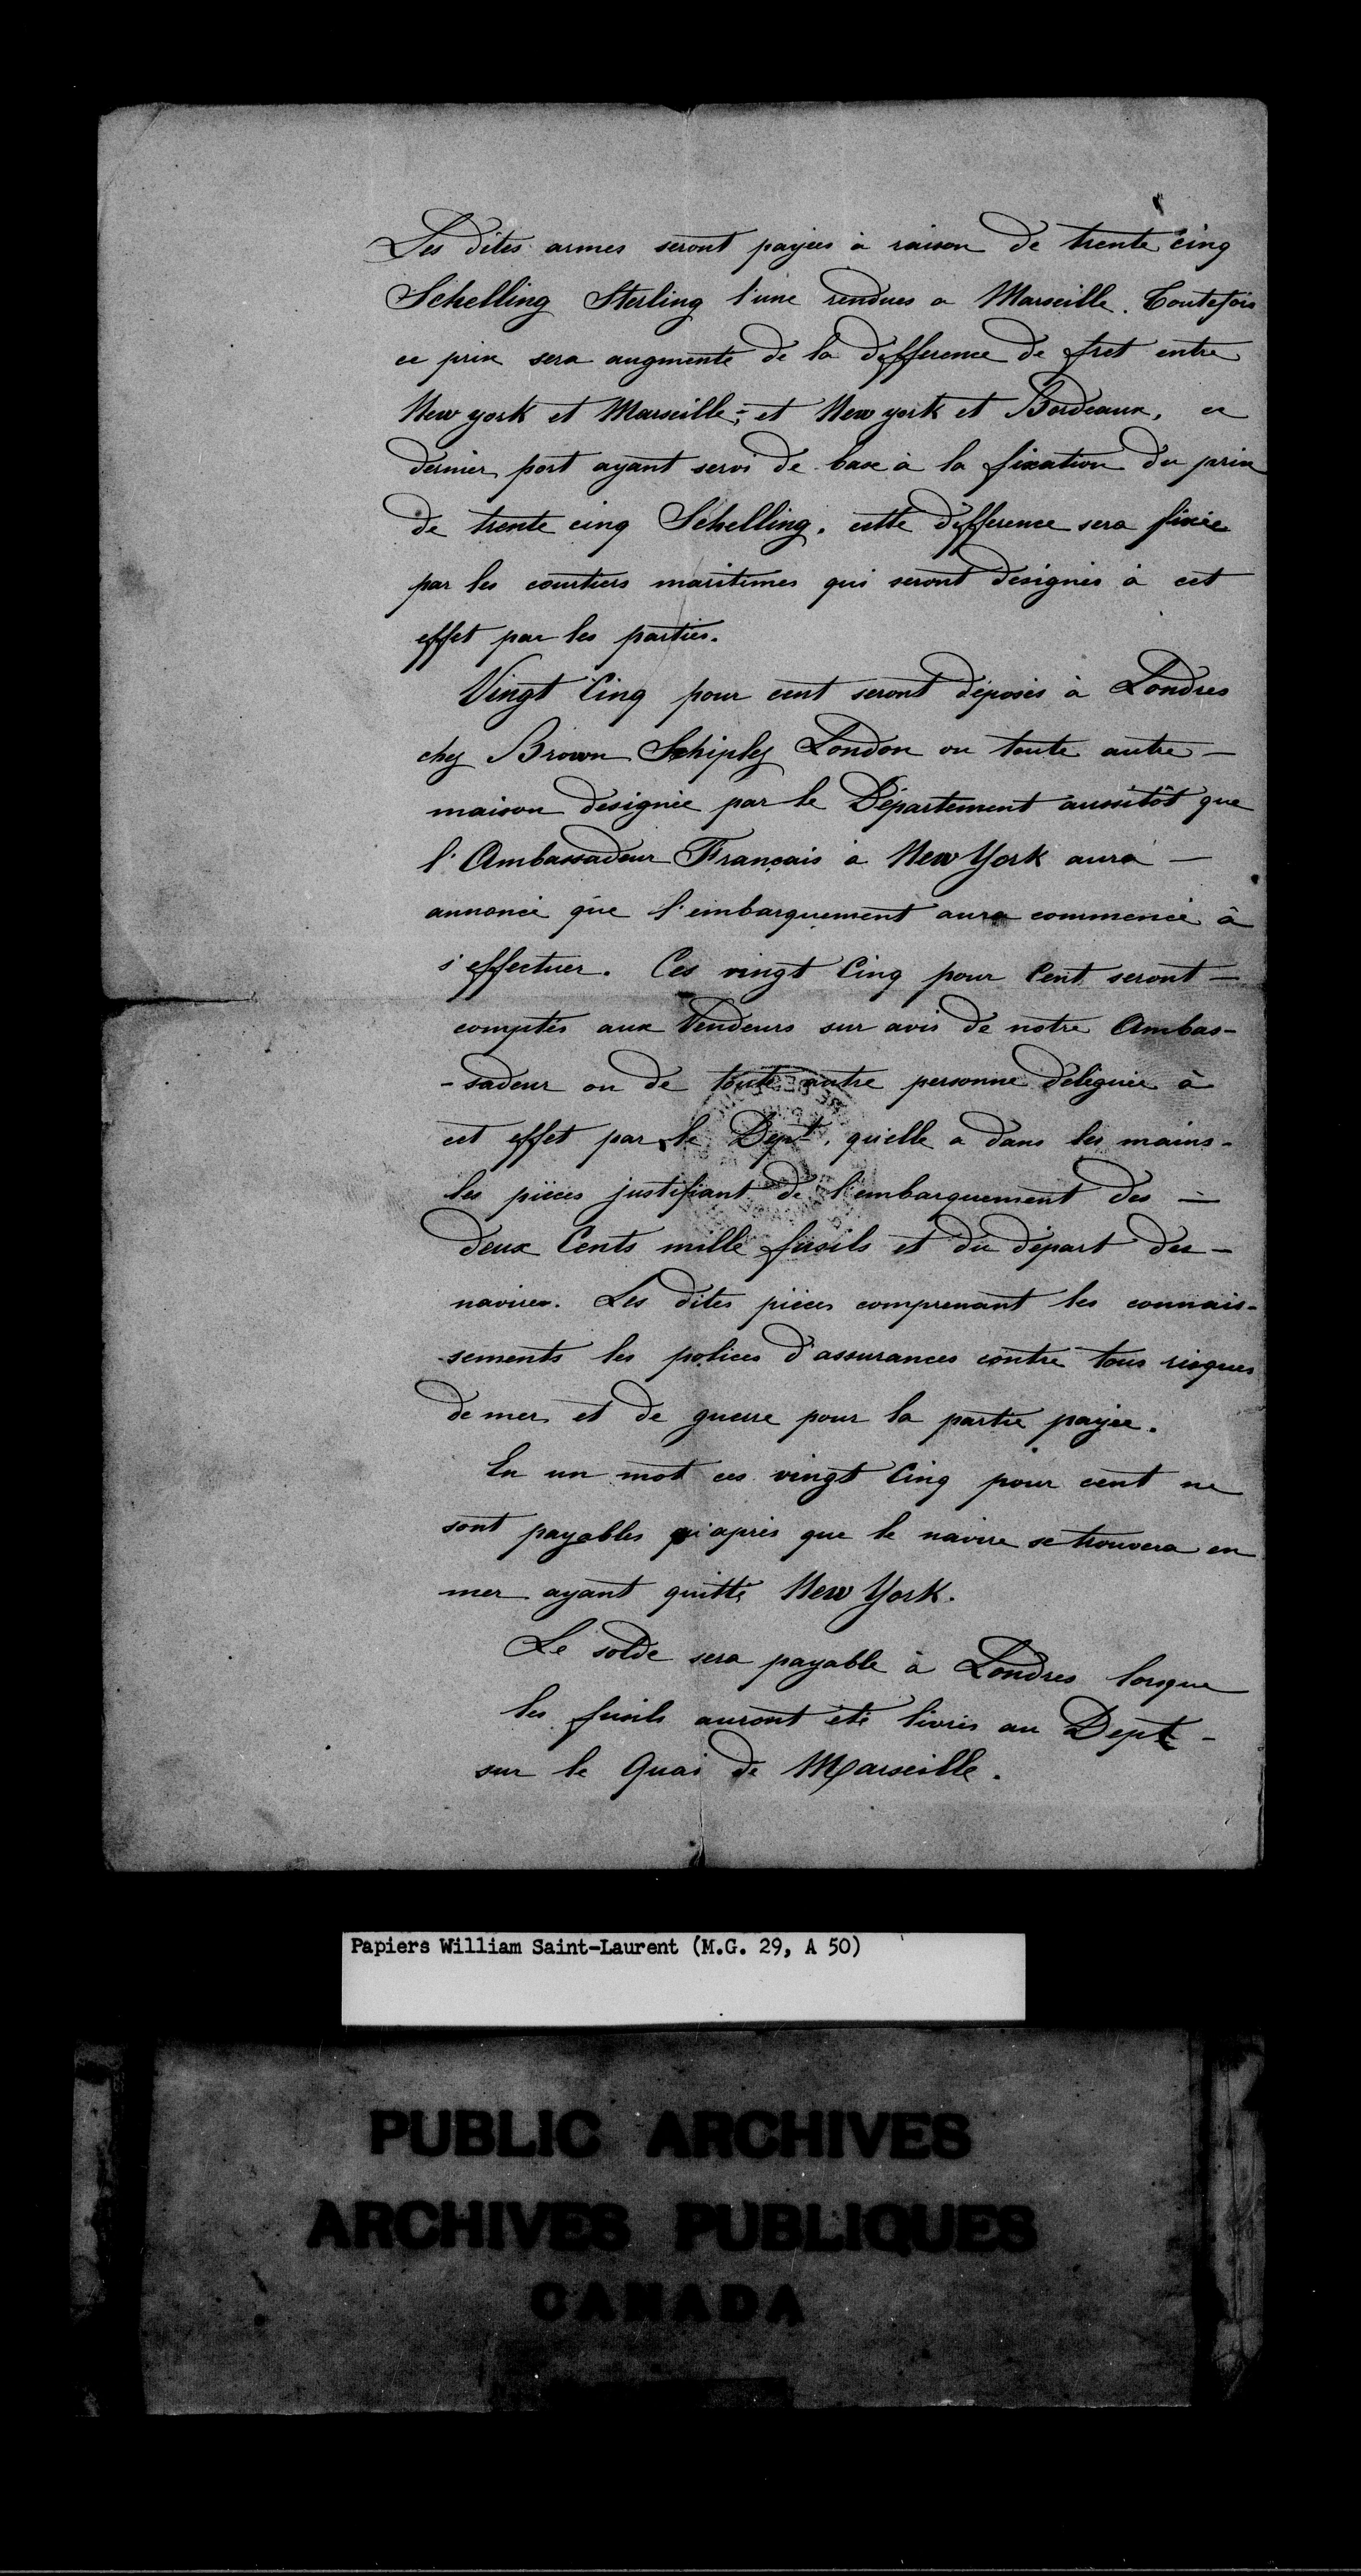 Les dites armes seront payées à raison de trente cinq
Schelling Sterling l'une rendues a Marseille. Toutefois
ce prix sera augmenté de la différence de fret entre
New york et Marseille; et New york et Bordeaux, ce
dernier port ayant servi de base à la fixation du prix
de trente cinq Schelling. cette difference sera fixée
par les courtiers maritimes qui seront désignés à cet
effet par les parties.
Vingt Cinq pour cent seront déposés à Londres
chez Brown Schipley London ou toute autre —
maison designée par le Département aussitôt que
l'Ambassadeur Français à New York aura —
annoncé que l'embarquement aura commencé à
s'effectuer. Ces vingt Cinq pour Cent seront —
comptés aux Vendeurs sur avis de notre Ambas-
-sadeur ou de toute autre personne déléguée à
cet effet par le Dept. qu'elle a dans les mains -
les pièces justifiant de l'embarquement des —
deux Cents mille fusils et du départ des -
navires. Les dites pièces comprenant les connais-
-sements les polices d'assurances contre tous risques
de mer et de guerre pour la partie payée.
En un mot ces vingt Cinq pour cent ne
sont payables qu'après que le navire se trouvera en
mer ayant quitté New York.
Le solde sera payable à Londres lorsque
les fusils auront été livrés au Dept -
sur le Quai de Marseille.
Papiers William Saint-Laurent (M.G. 29, A 50)
PUBLIC ARCHIVES
ARCHIVES PUBLIQUES
CANADA